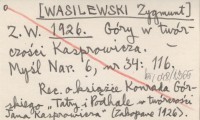 [WASILEWSKI Zygmunt]
Z. W. 1926. Góry w twór-
czości Kasprowicza.
Myśl Nar. 6, nr 34: 116.
Rec. o książce Konrada Gór-
skiego „Tatry i Podhale w twórczości
Jana Kasprowicza" (Zakopane 1926).